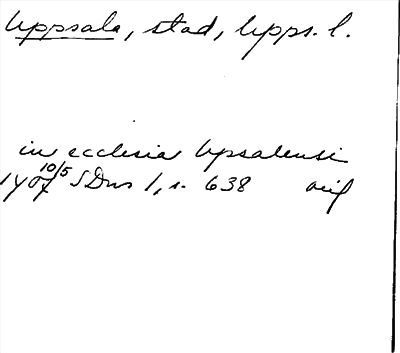 Uppsala, stad, Upps. l.
in ecclesia Upsalensi
10/5
1407 SDns 1, s. 638 orig